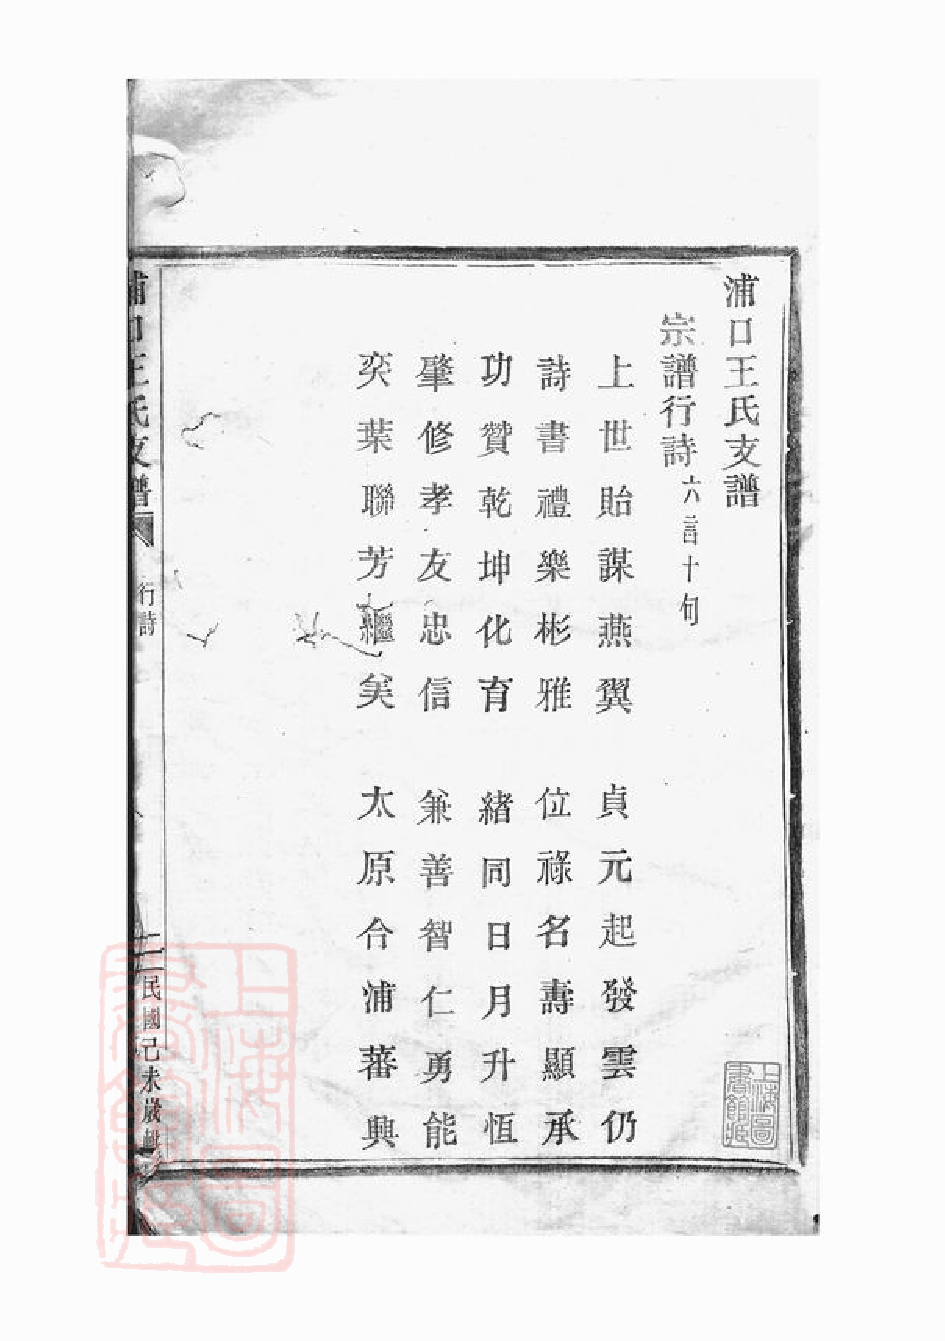 浦口王氏支譜
宗譜行詩六言十句
上世貽謀燕翼 貞元起發雲仍
詩書禮樂彬雅 位祿名壽顯承
功贊乾坤化育 緒同日月升恆
肇修孝友忠信 兼善智仁勇能
奕葉聯芳繼美 太原合浦蕃興
浦口王氏支譜 行詩 民國己未歲
上海圖書館藏
上海圖書館藏